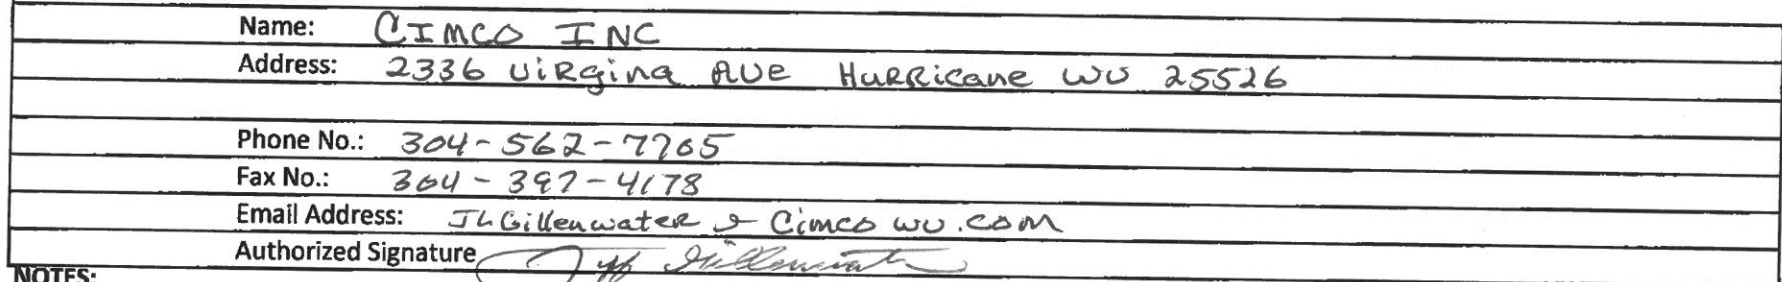 Name: CIMCO INC
Address: 2336 VIRgina AVE HuRRicane WV 25526
Phone No.: 304-562-7765
Fax No.: 304-397-4178
Email Address: JLGillenwater @ Cimco wv.com
Authorized Signature Jeff Gillenwater
NOTES: